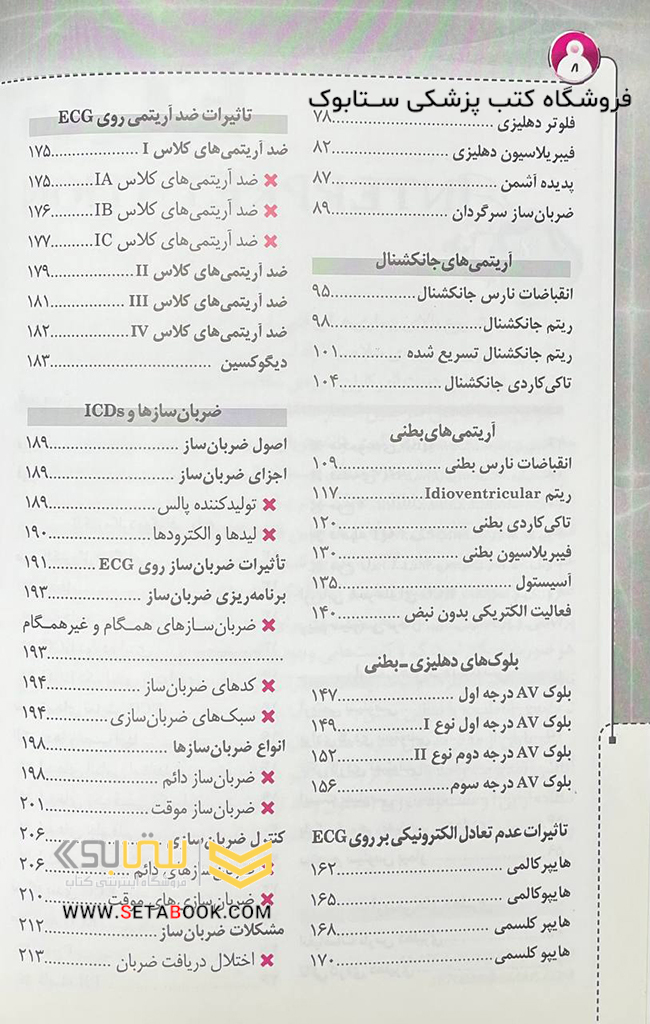 ۸
فروشگاه کتب پزشکی ستابوک
فلوتر دهلیزی ..............................۷۸
فیبریلاسیون دهلیزی ..............................۸۲
پدیده آشمن ..............................۸۷
ضربان‌ساز سرگردان ..............................۸۹
آریتمی‌های جانکشنال
انقباضات نارس جانکشنال..............................۹۵
ریتم جانکشنال..............................۹۸
ریتم جانکشنال تسریع شده ..............................۱۰۱
تاکی‌کاردی جانکشنال ..............................۱۰۴
آریتمی‌های بطنی
انقباضات نارس بطنی ..............................۱۰۹
ریتم Idioventricular..............................۱۱۷
تاکی‌کاردی بطنی ..............................۱۲۰
فیبریلاسیون بطنی ..............................۱۳۰
آسیستول ..............................۱۳۵
فعالیت الکتریکی بدون نبض ..............................۱۴۰
بلوک‌های دهلیزی-بطنی
بلوک AV درجه اول ..............................۱۴۷
بلوک AV درجه اول نوع I ..............................۱۴۹
بلوک AV درجه دوم نوع II ..............................۱۵۲
بلوک AV درجه سوم..............................۱۵۶
تاثیرات عدم تعادل الکترونیکی بر روی ECG
هایپرکالمی ..............................۱۶۲
هایپوکالمی ..............................۱۶۵
هایپر کلسمی ..............................۱۶۸
هایپو کلسمی ..............................۱۷۰
تاثیرات ضد آریتمی روی ECG
ضد آریتمی‌های کلاس I ..............................۱۷۵
ضد آریتمی‌های کلاس IA ..............................۱۷۵
ضد آریتمی‌های کلاس IB ..............................۱۷۶
ضد آریتمی‌های کلاس IC ..............................۱۷۷
ضد آریتمی‌های کلاس II ..............................۱۷۹
ضد آریتمی‌های کلاس III ..............................۱۸۱
ضد آریتمی‌های کلاس IV ..............................۱۸۲
دیگوکسین ..............................۱۸۳
ضربان‌سازها و ICDs
اصول ضربان‌ساز ..............................۱۸۹
اجزای ضربان‌ساز ..............................۱۸۹
تولیدکننده پالس ..............................۱۸۹
لیدها و الکترودها..............................۱۹۰
تأثیرات ضربان‌ساز روی ECG ..............................۱۹۱
برنامه‌ریزی ضربان‌ساز ..............................۱۹۳
ضربان‌سازهای همگام و غیرهمگام
..............................۱۹۳
کدهای ضربان‌ساز ..............................۱۹۴
سبک‌های ضربان‌سازی ..............................۱۹۴
انواع ضربان‌سازها ..............................۱۹۸
ضربان‌ساز دائم ..............................۱۹۸
ضربان‌ساز موقت ..............................۲۰۱
کنترل ضربان‌سازی ..............................۲۰۶
ضربان‌سازهای دائم ..............................۲۰۶
ضربان‌سازی های موقت ..............................۲۱۰
مشکلات ضربان‌ساز ..............................۲۱۲
اختلال دریافت ضربان ..............................۲۱۳
ستابوک
فروشگاه اینترنتی کتاب
WWW.SETABOOK.COM